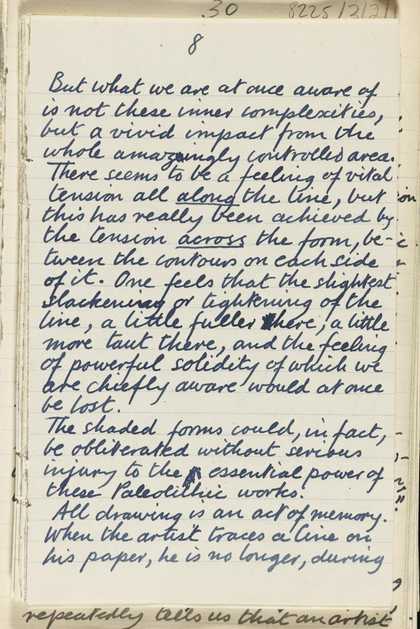 30
8225/2/2/1
8
But what we are at once aware of
is not these inner complexities,
but a vivid impact from the
whole amazingly controlled area.
There seems to be a feeling of vital
tension all along the line, but
this has really been achieved by
the tension across the form, be-
tween the contours on each side
of it. One feels that the slightest
slackening or tightening of the
line, a little fuller here, a little
more taut there, and the feeling
of powerful solidity of which we
are chiefly aware would at once
be lost.
The shaded forms could, in fact,
be obliterated without serious
injury to the essential power of
these Paleolithic works.
All drawing is an act of memory.
When the artist traces a line on
his paper, he is no longer, during
repeatedly tells us that an artist